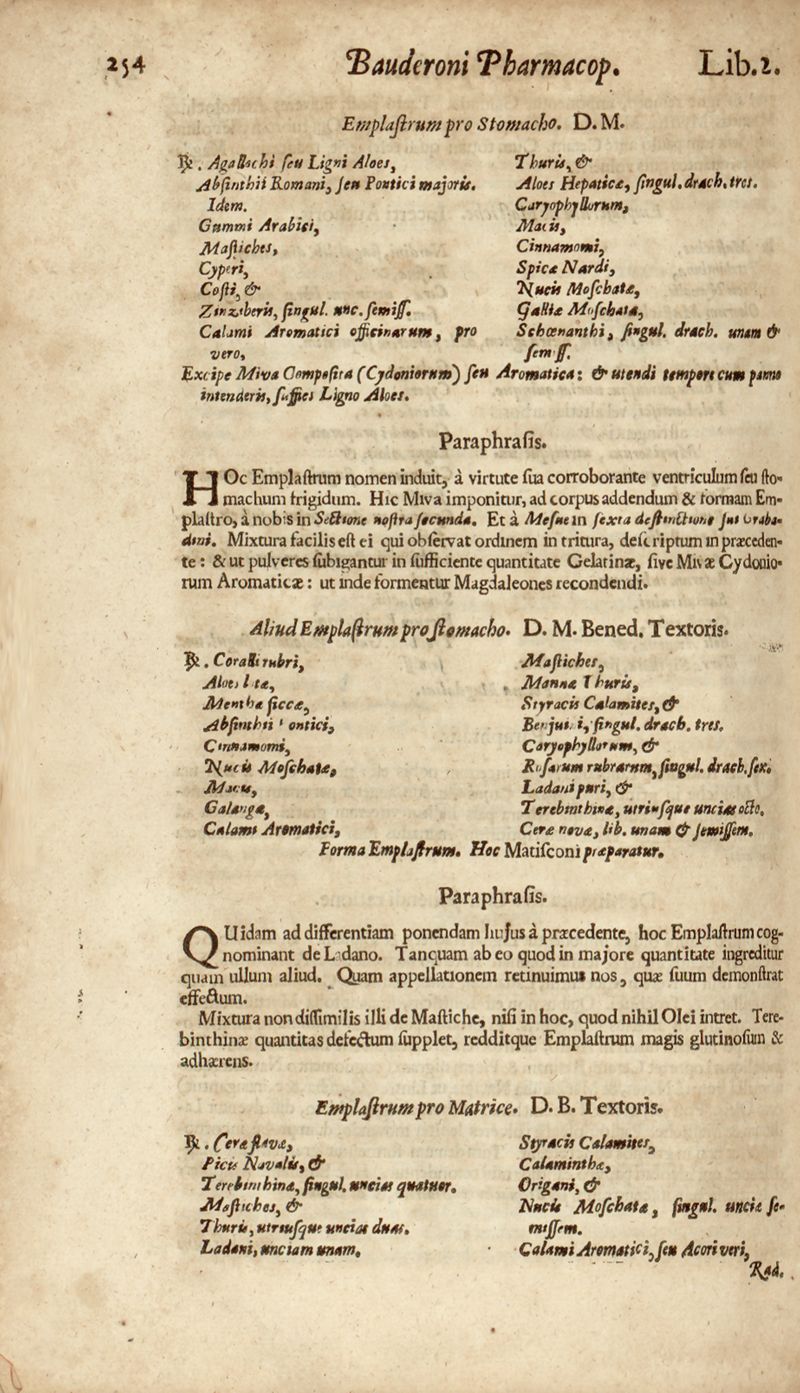 254 Bauderoni Pharmacop. Lib.2.
Emplaſtrum pro Stomacho. D. M.
℞. Agallochi ſeu Ligni Aloes,
Abſinthii Romani, ſeu Pontici majoris.
Idem.
Gummi Arabici,
Maſtiches,
Cyperi,
Coſti, &
Zinziberis, ſingul. unc. ſemiſſ.
Calami Aromatici officinarum, pro
vero,
Thuris, &
Aloes Hepaticæ, ſingul. drach. tres.
Caryophyllorum,
Macis,
Cinnamomi,
Spicæ Nardi,
Nucis Moſchatæ,
Galliæ Moſchatæ,
Schœnanthi, ſingul. drach. unam &
ſemiſſ.
Excipe Miva Compoſita (Cydoniorum) ſeu Aromatica: & utendi tempore cum panno
intenderis, ſuffies Ligno Aloes.
Paraphraſis.
HOc Emplaſtrum nomen induit, à virtute ſua corroborante ventriculum ſeu ſto-
machum frigidum. Hic Miva imponitur, ad corpus addendum & formam Em-
plaſtro, à nobis in Sectione noſtra ſecunda. Et à Meſue in ſexta deſtinctione ſui Graba-
dini. Mixtura facilis eſt ei qui obſervat ordinem in tritura, deſcriptum in præceden-
te: & ut pulveres ſubigantur in ſufficiente quantitate Gelatinæ, ſive Mivæ Cydonio-
rum Aromaticæ: ut inde formentur Magdaleones recondendi.
Aliud Emplaſtrum pro ſtomacho. D. M. Bened. Textoris.
℞. Coralli rubri,
Aloes lotæ,
Menthæ ſiccæ,
Abſinthii Pontici,
Cinnamomi,
Nucis Moſchatæ,
Macis,
Galangæ,
Calami Aromatici,
Maſtiches,
Mannæ Thuris,
Styracis Calamites, &
Benjui. i, ſingul. drach. tres.
Caryophyllorum, &
Roſarum rubrarum, ſingul. drach. ſex.
Ladani puri, &
Terebinthinæ, utriuſque uncias octo,
Ceræ novæ, lib. unam & ſemiſſem.
Forma Emplaſtrum. Hoc Matiſconi præparatur.
Paraphraſis.
QUidam ad differentiam ponendam hujus à præcedente, hoc Emplaſtrum cog-
nominant de Ladano. Tanquam ab eo quod in majore quantitate ingreditur
quam ullum aliud. Quam appellationem retinuimus nos, quæ ſuum demonſtrat
effectum.
Mixtura non diſſimilis illi de Maſtiche, niſi in hoc, quod nihil Olei intret. Tere-
binthinæ quantitas defectum ſupplet, redditque Emplaſtrum magis glutinoſum &
adhærens.
Emplaſtrum pro Matrice. D. B. Textoris.
℞. Ceræ flavæ,
Picis Navalis, &
Terebinthinæ, ſingul. uncias quatuor.
Maſtiches, &
Thuris, utriuſque uncias duas.
Ladani, unciam unam,
Styracis Calamites,
Calaminthæ,
Origani, &
Nucis Moſchatæ, ſingul. unciæ ſe-
miſſem.
Calami Aromatici, ſeu Acori veri,
Rad.